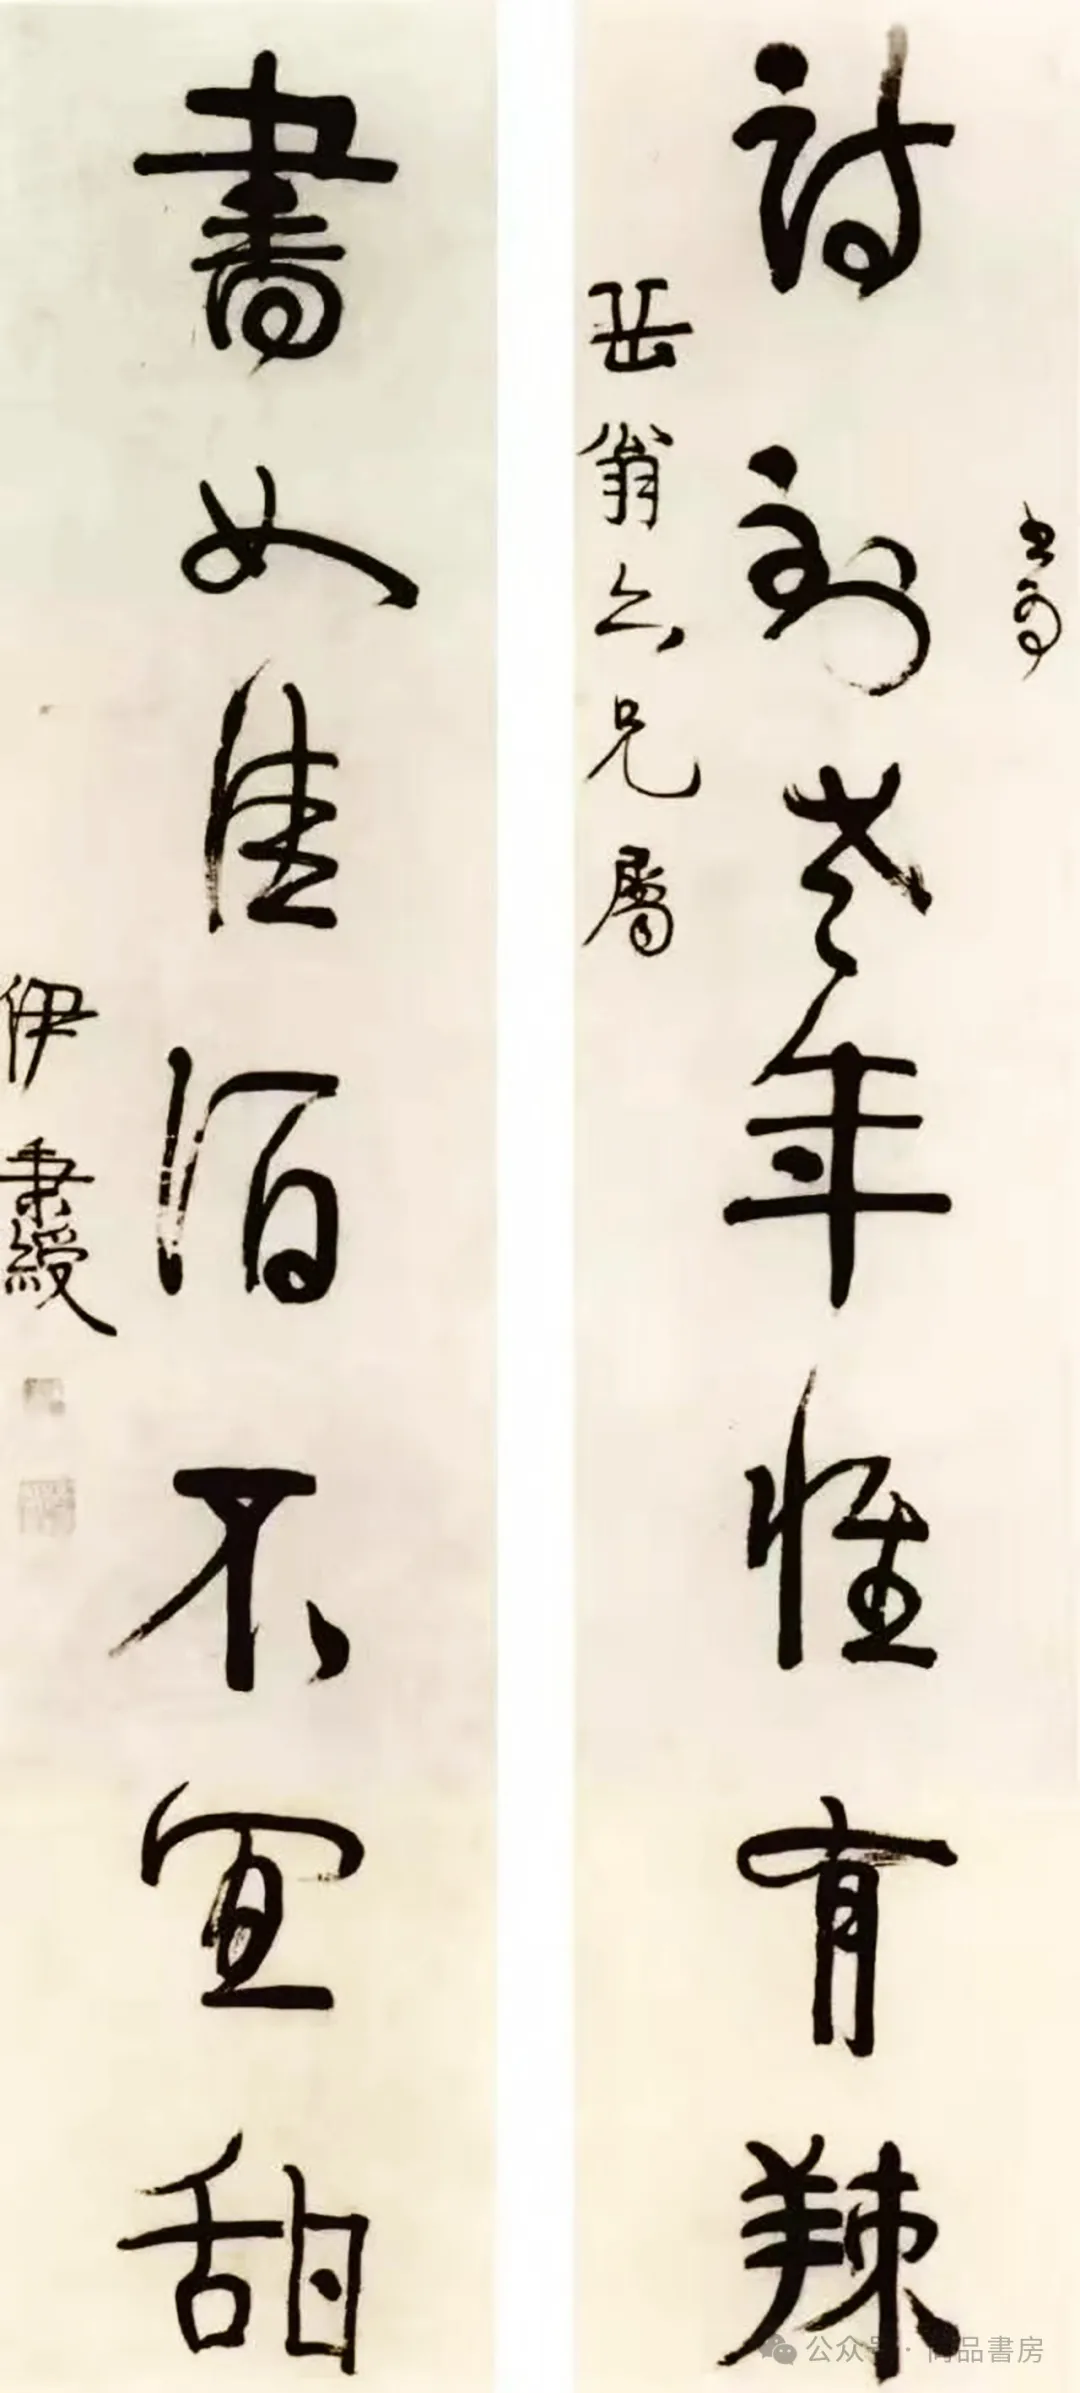 詩到老年惟有辣
岳翁六兄屬
書如佳酒不宜甜
伊秉綬
公众号 · 尚品書房